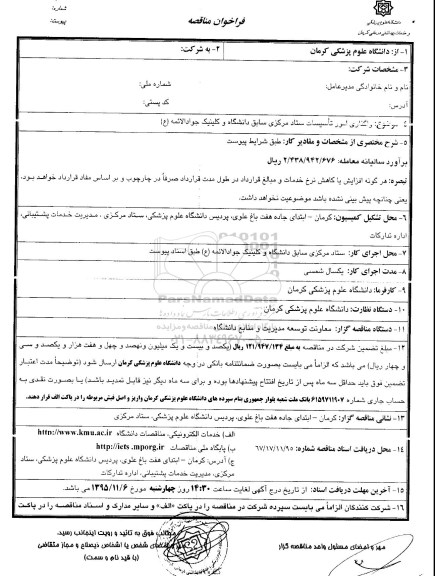 دانشگاه علوم پزشکی
و خدمات بهداشتی درمانی کرمان
فراخوان مناقصه
شماره:
پیوست:
۱- از: دانشگاه علوم پزشکی کرمان
۲- به شرکت:
۳- مشخصات شرکت:
نام و نام خانوادگی مدیرعامل: شماره ملی:
آدرس: کد پستی:
۴- موضوع: واگذاری امور تأسیسات ستاد مرکزی سابق دانشگاه و کلینیک جوادالائمه (ع)
۵- شرح مختصری از مشخصات و مقادیر کار: طبق شرایط پیوست
برآورد سالیانه معامله: ۲/۴۳۸/۹۴۲/۶۷۶ ریال
تبصره: هر گونه افزایش یا کاهش نرخ خدمات و مبالغ قرارداد در طول مدت قرارداد صرفاً در چارچوب و بر اساس مفاد قرارداد خواهد بود،
یعنی چنانچه پیش بینی نشده باشد موضوعیت نخواهد داشت.
۶- محل تشکیل کمیسیون: کرمان – ابتدای جاده هفت باغ علوی، پردیس دانشگاه علوم پزشکی، ستاد مرکزی، مدیریت خدمات پشتیبانی،
اداره تدارکات
۷- محل اجرای کار: ستاد مرکزی سابق دانشگاه و کلینیک جوادالائمه (ع) طبق اسناد پیوست
۸- مدت اجرای کار: یکسال شمسی
۹- کارفرما: دانشگاه علوم پزشکی کرمان
۱۰- دستگاه نظارت: دانشگاه علوم پزشکی کرمان
۱۱- دستگاه مناقصه گزار: معاونت توسعه مدیریت و منابع دانشگاه
۱۲- مبلغ تضمین شرکت در مناقصه به مبلغ ۱۲۱/۹۴۷/۱۳۴ ریال (یکصد و بیست و یک میلیون و نهصد و چهل و هفت هزار و یکصد و سی
و چهار ریال) می باشد که الزاماً می بایست بصورت ضمانتنامه بانکی در وجه دانشگاه علوم پزشکی کرمان ارسال شود (توضیحاً مدت اعتبار
تضمین فوق باید حداقل سه ماه پس از تاریخ افتتاح پیشنهادها بوده و برای سه ماه دیگر نیز قابل تمدید باشد) یا بصورت نقدی به
حساب جاری شماره ۶۱۵۹۷۱۱۹۰۷ بانک ملت شعبه بلوار جمهوری بنام سپرده های دانشگاه علوم پزشکی کرمان واریز و اصل فیش مربوطه را در پاکت الف قرار دهند.
۱۳- نشانی مناقصه گزار: کرمان – ابتدای جاده هفت باغ علوی، پردیس دانشگاه علوم پزشکی، ستاد مرکزی
۱۴- محل دریافت اسناد مناقصه شماره: ۶۷/۱۷/۱۱/۹۵
الف) خدمات الکترونیکی، مناقصات دانشگاه http://www.kmu.ac.ir
ب) پایگاه ملی مناقصات http://iets.mporg.ir
ج) آدرس: کرمان – ابتدای جاده هفت باغ علوی، پردیس دانشگاه علوم پزشکی، ستاد
مرکزی، مدیریت خدمات پشتیبانی، اداره تدارکات
۱۵- آخرین مهلت دریافت اسناد: از تاریخ درج آگهی لغایت ساعت ۱۴:۳۰ روز چهارشنبه مورخ ۱۳۹۵/۱۱/۶ می باشد.
۱۶- شرکت کنندگان الزاماً می بایست سپرده شرکت در مناقصه را در پاکت «الف» و سایر مدارک و اسناد مناقصه را در پاکت
مراتب فوق به تائید و رویت اینجانب رسید.
امضای شخص یا اشخاص ذیصلاح و مجاز متقاضی
(با قید نام و سمت)
مهر و امضای مسئول واحد مناقصه گزار